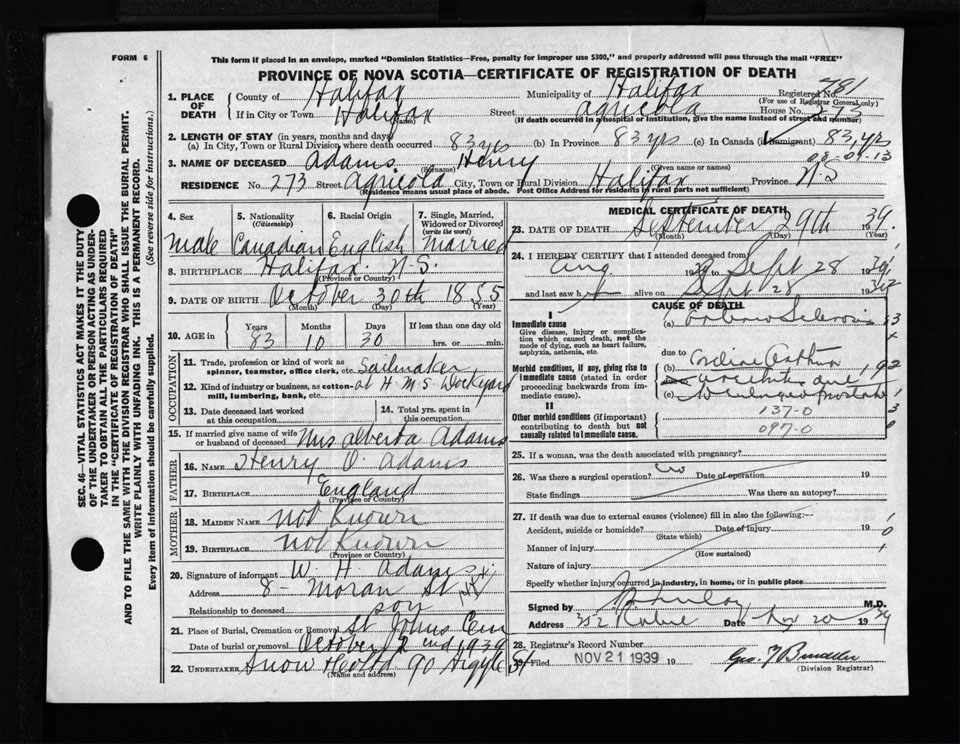 FORM 6
This form if placed in an envelope, marked "Dominion Statistics—Free, penalty for improper use $300," and properly addressed will pass through the mail "FREE"
PROVINCE OF NOVA SCOTIA—CERTIFICATE OF REGISTRATION OF DEATH
SEC. 46—VITAL STATISTICS ACT MAKES IT THE DUTY
OF THE UNDERTAKER OR PERSON ACTING AS UNDER-
TAKER TO OBTAIN ALL THE PARTICULARS REQUIRED
IN THE "CERTIFICATE OF REGISTRATION OF DEATH"
AND TO FILE THE SAME WITH THE DIVISION REGISTRAR WHO SHALL ISSUE THE BURIAL PERMIT.
WRITE PLAINLY WITH UNFADING INK. THIS IS A PERMANENT RECORD.
Every item of information should be carefully supplied. (See reverse side for instructions.)
1. PLACE OF DEATH County of Halifax Municipality of Halifax Registered No. 781
(For use of Registrar General only)
If in City or Town Halifax (Name) Street Agricola House No. 273
(If death occurred in a hospital or institution, give the name instead of street and number)
2. LENGTH OF STAY (in years, months and days)
(a) In City, Town or Rural Division where death occurred 83 yrs (b) In Province 83 yrs (c) In Canada (if immigrant) 83 yrs
09-09-13
3. NAME OF DECEASED Adams (Surname) Henry (Given name or names)
RESIDENCE No. 273 Street Agricola City, Town or Rural Division Halifax Province N.S
(Residence means usual place of abode. Post Office Address for residents in rural parts not sufficient)
4. Sex Male
5. Nationality (Citizenship) Canadian
6. Racial Origin English
7. Single, Married, Widowed or Divorced (write the word) Married
8. BIRTHPLACE Halifax. N.S. (Province or Country)
9. DATE OF BIRTH October (Month) 30th (Day) 1855 (Year)
10. AGE in Years 83 Months 10 Days 30 If less than one day old hrs. or min.
OCCUPATION
11. Trade, profession or kind of work as spinner, teamster, office clerk, etc. Sailmaker
12. Kind of industry or business, as cotton-mill, lumbering, bank, etc. at H.M.S Dockyard
13. Date deceased last worked at this occupation
14. Total yrs. spent in this occupation
15. If married give name of wife or husband of deceased Mrs Alberta Adams
FATHER
16. NAME Henry O. Adams
17. BIRTHPLACE England
MOTHER
18. MAIDEN NAME Not Known
19. BIRTHPLACE Not Known
(Province or Country)
20. Signature of informant W. H. Adams
Address 8 - Moran St
Relationship to deceased son
21. Place of Burial, Cremation or Removal St Johns Cem
Date of burial or removal October 2nd 1939
22. UNDERTAKER Snow &Co Ltd. 90 Argyle St
(Name and address)
MEDICAL CERTIFICATE OF DEATH
23. DATE OF DEATH September (Month) 29th (Day) 1939. (Year)
24. I HEREBY CERTIFY that I attended deceased from
Aug 1939 to Sept 28 1939
and last saw h alive on Sept 28 19
CAUSE OF DEATH
I
Immediate cause
Give disease, injury or complication which caused death, not the mode of dying, such as heart failure, asphyxia, asthenia, etc.
(a) Arterio Sclerosis
due to
Morbid conditions, if any, giving rise to immediate cause (stated in order proceeding backwards from immediate cause)
(b) Cardiac Asthma
(c) to enlarged prostate
II
Other morbid conditions (if important) contributing to death but not causally related to immediate cause.
137-0
097-0
25. If a woman, was the death associated with pregnancy?
26. Was there a surgical operation? no Date of operation 19
State findings Was there an autopsy?
27. If death was due to external causes (violence) fill in also the following:—
Accident, suicide or homicide? (State which) Date of injury 19
Manner of injury (How sustained)
Nature of injury
Specify whether injury occurred in industry, in home, or in public place
Signed by M.D.
Address 352 Robie Date Nov 20 1939
28. Registrar's Record Number
29. Filed NOV 21 1939 19
(Division Registrar)